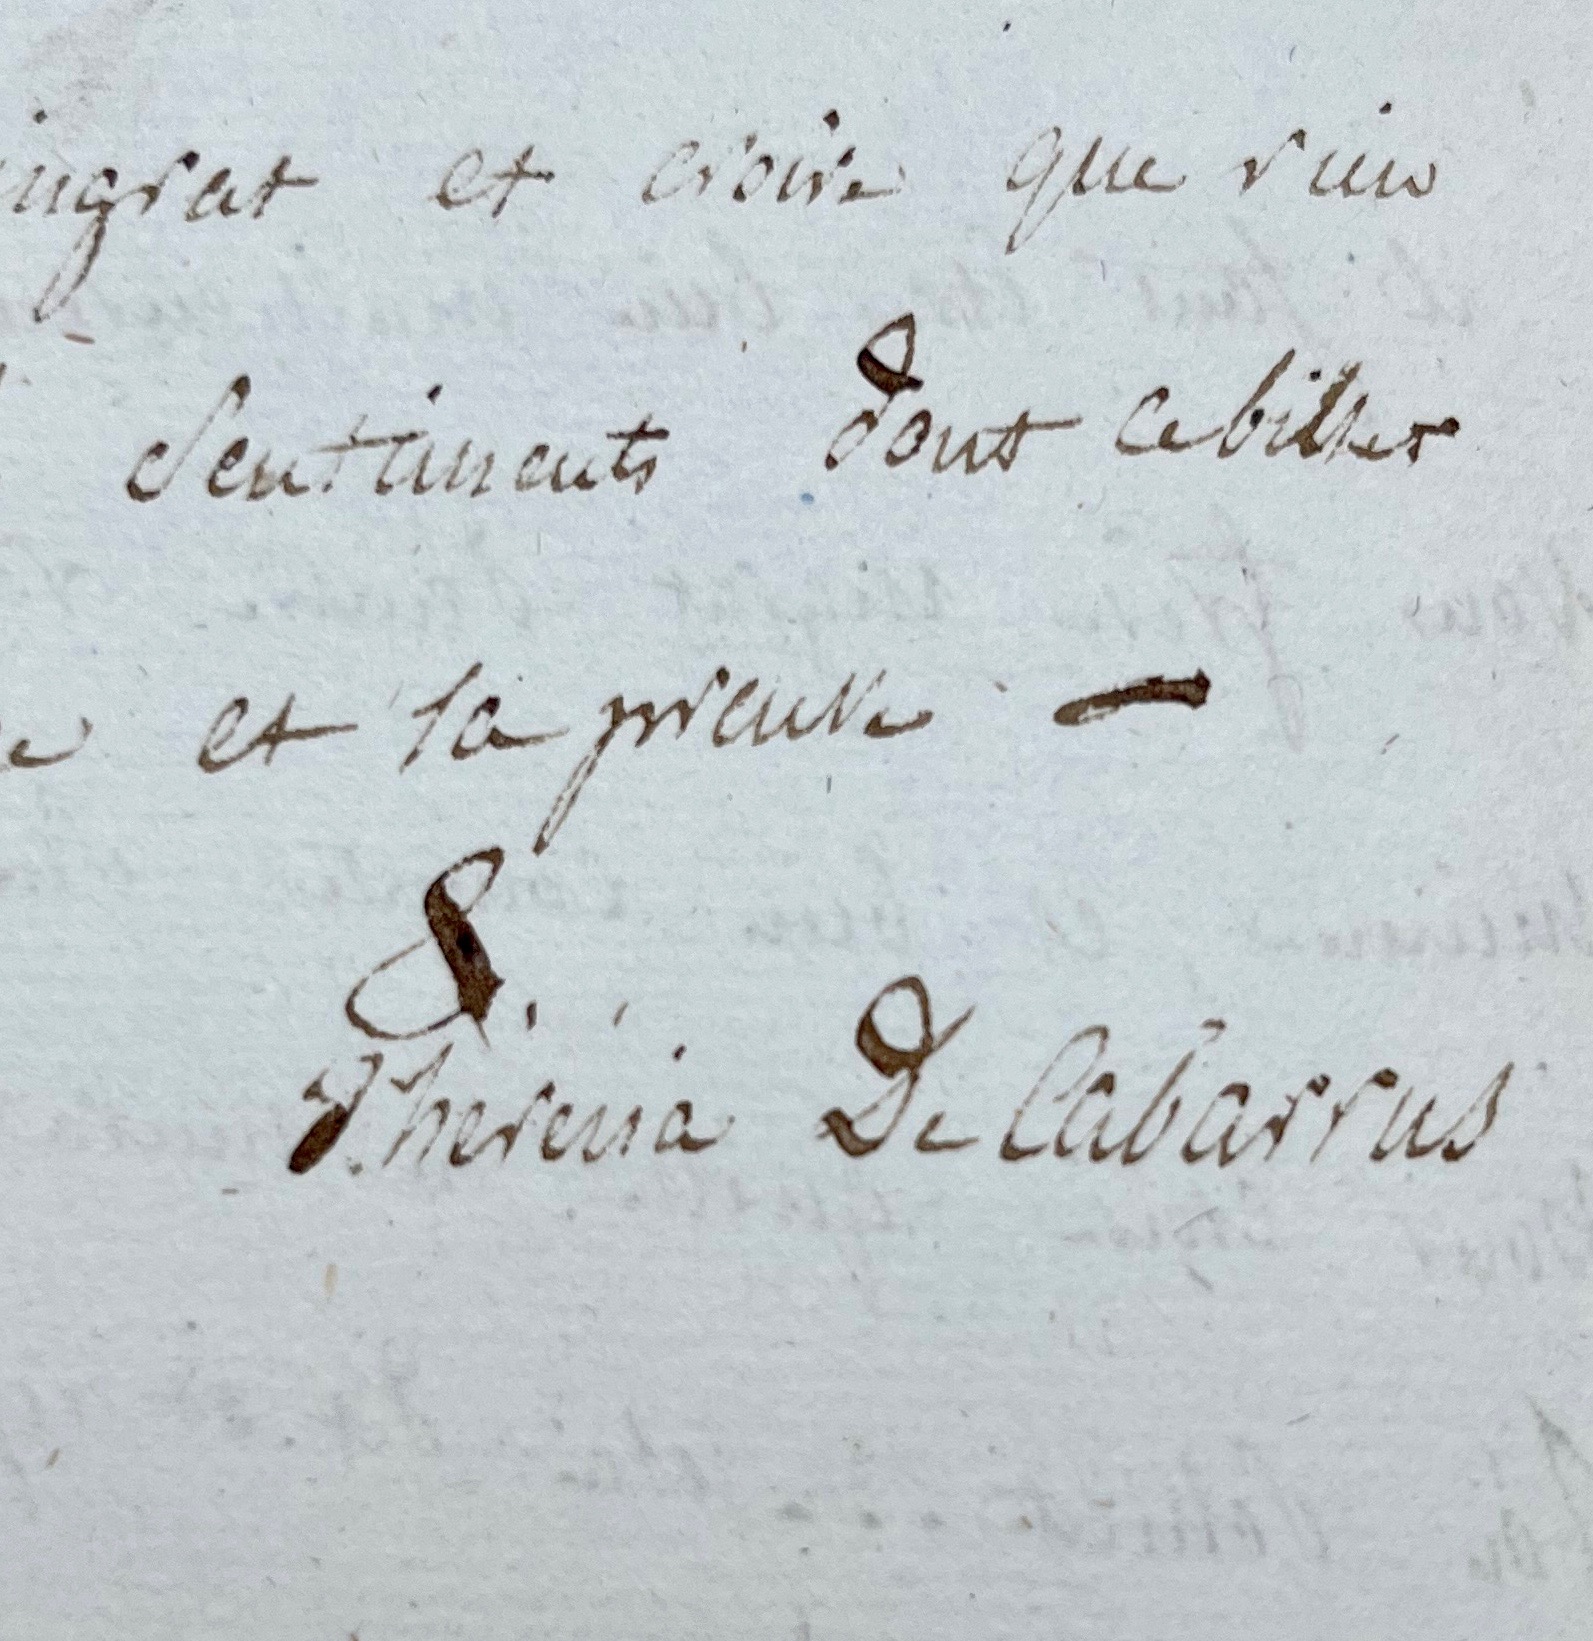 ingrat et croire que rien
Sentiments dont ce billet
et la preuve —
Theresia De Cabarrus